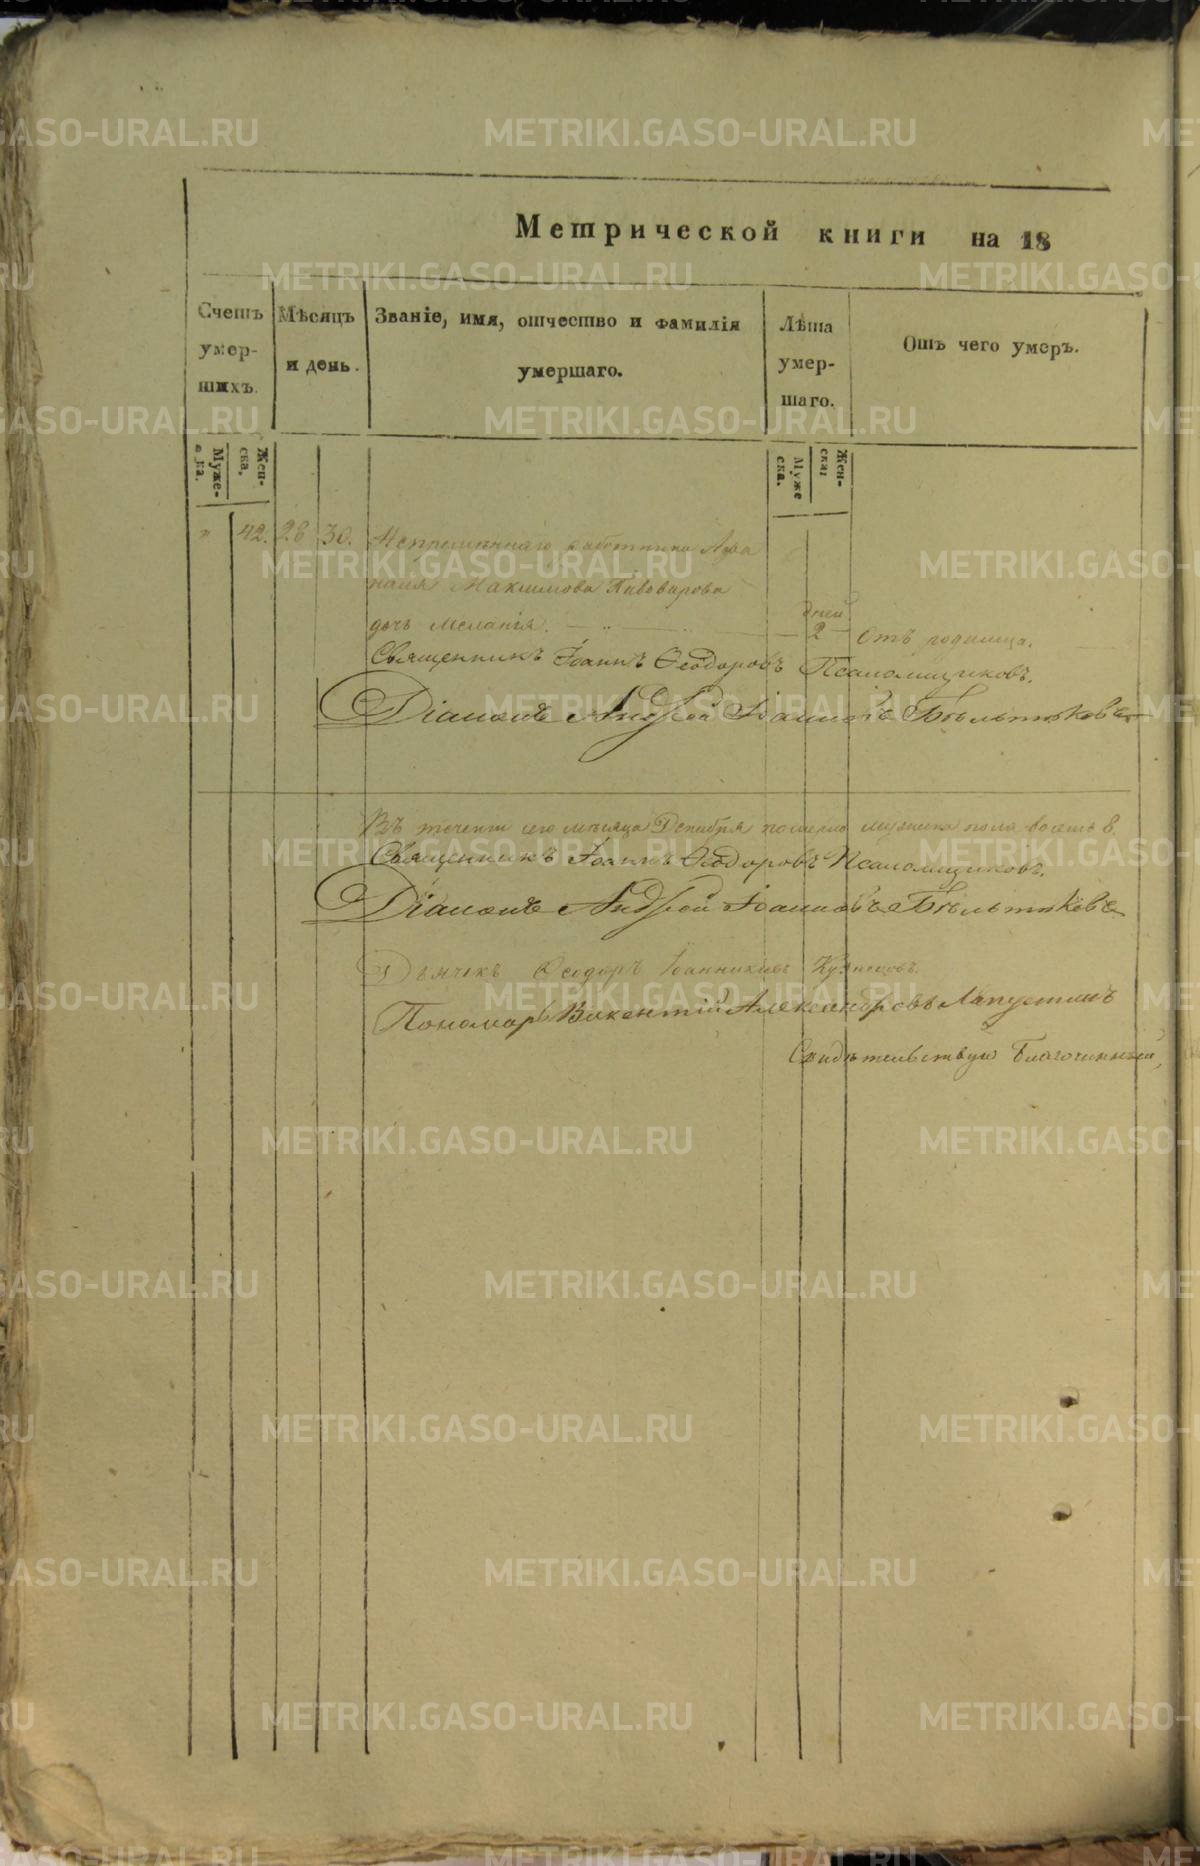 Метрической книги на 18
Счетъ умер-шихъ.
Муже-ска.
Жен-ска.
Мѣсяцъ и день.
Званіе, имя, отчество и фамилія умершаго.
Лѣта умер-шаго.
Муже ска.
Жен-ска:
Отъ чего умеръ.
" 42. 28 30. Непремѣннаго работника Афа
насія Максимова Пивоварова
дней
дочь Меланія. 2 Отъ родимца.
Священникъ Іоаннъ Ѳеодоровъ Псаломщиковъ.
Діаконъ Андрей Іоанновъ Бѣльтюковъ
Въ теченіи сего мѣсяца Декабря померло мужеска пола восемь 8.
Священникъ Іоаннъ Ѳеодоровъ Псаломщиковъ.
Діаконъ Андрей Іоанновъ Бѣльтюковъ
Дьячекъ Ѳеодоръ Іоанникіевъ Кузнецовъ.
Пономарь Викентій Александровъ Лапустинъ
Свидѣтельствую Благочинный,
METRIKI.GASO-URAL.RU